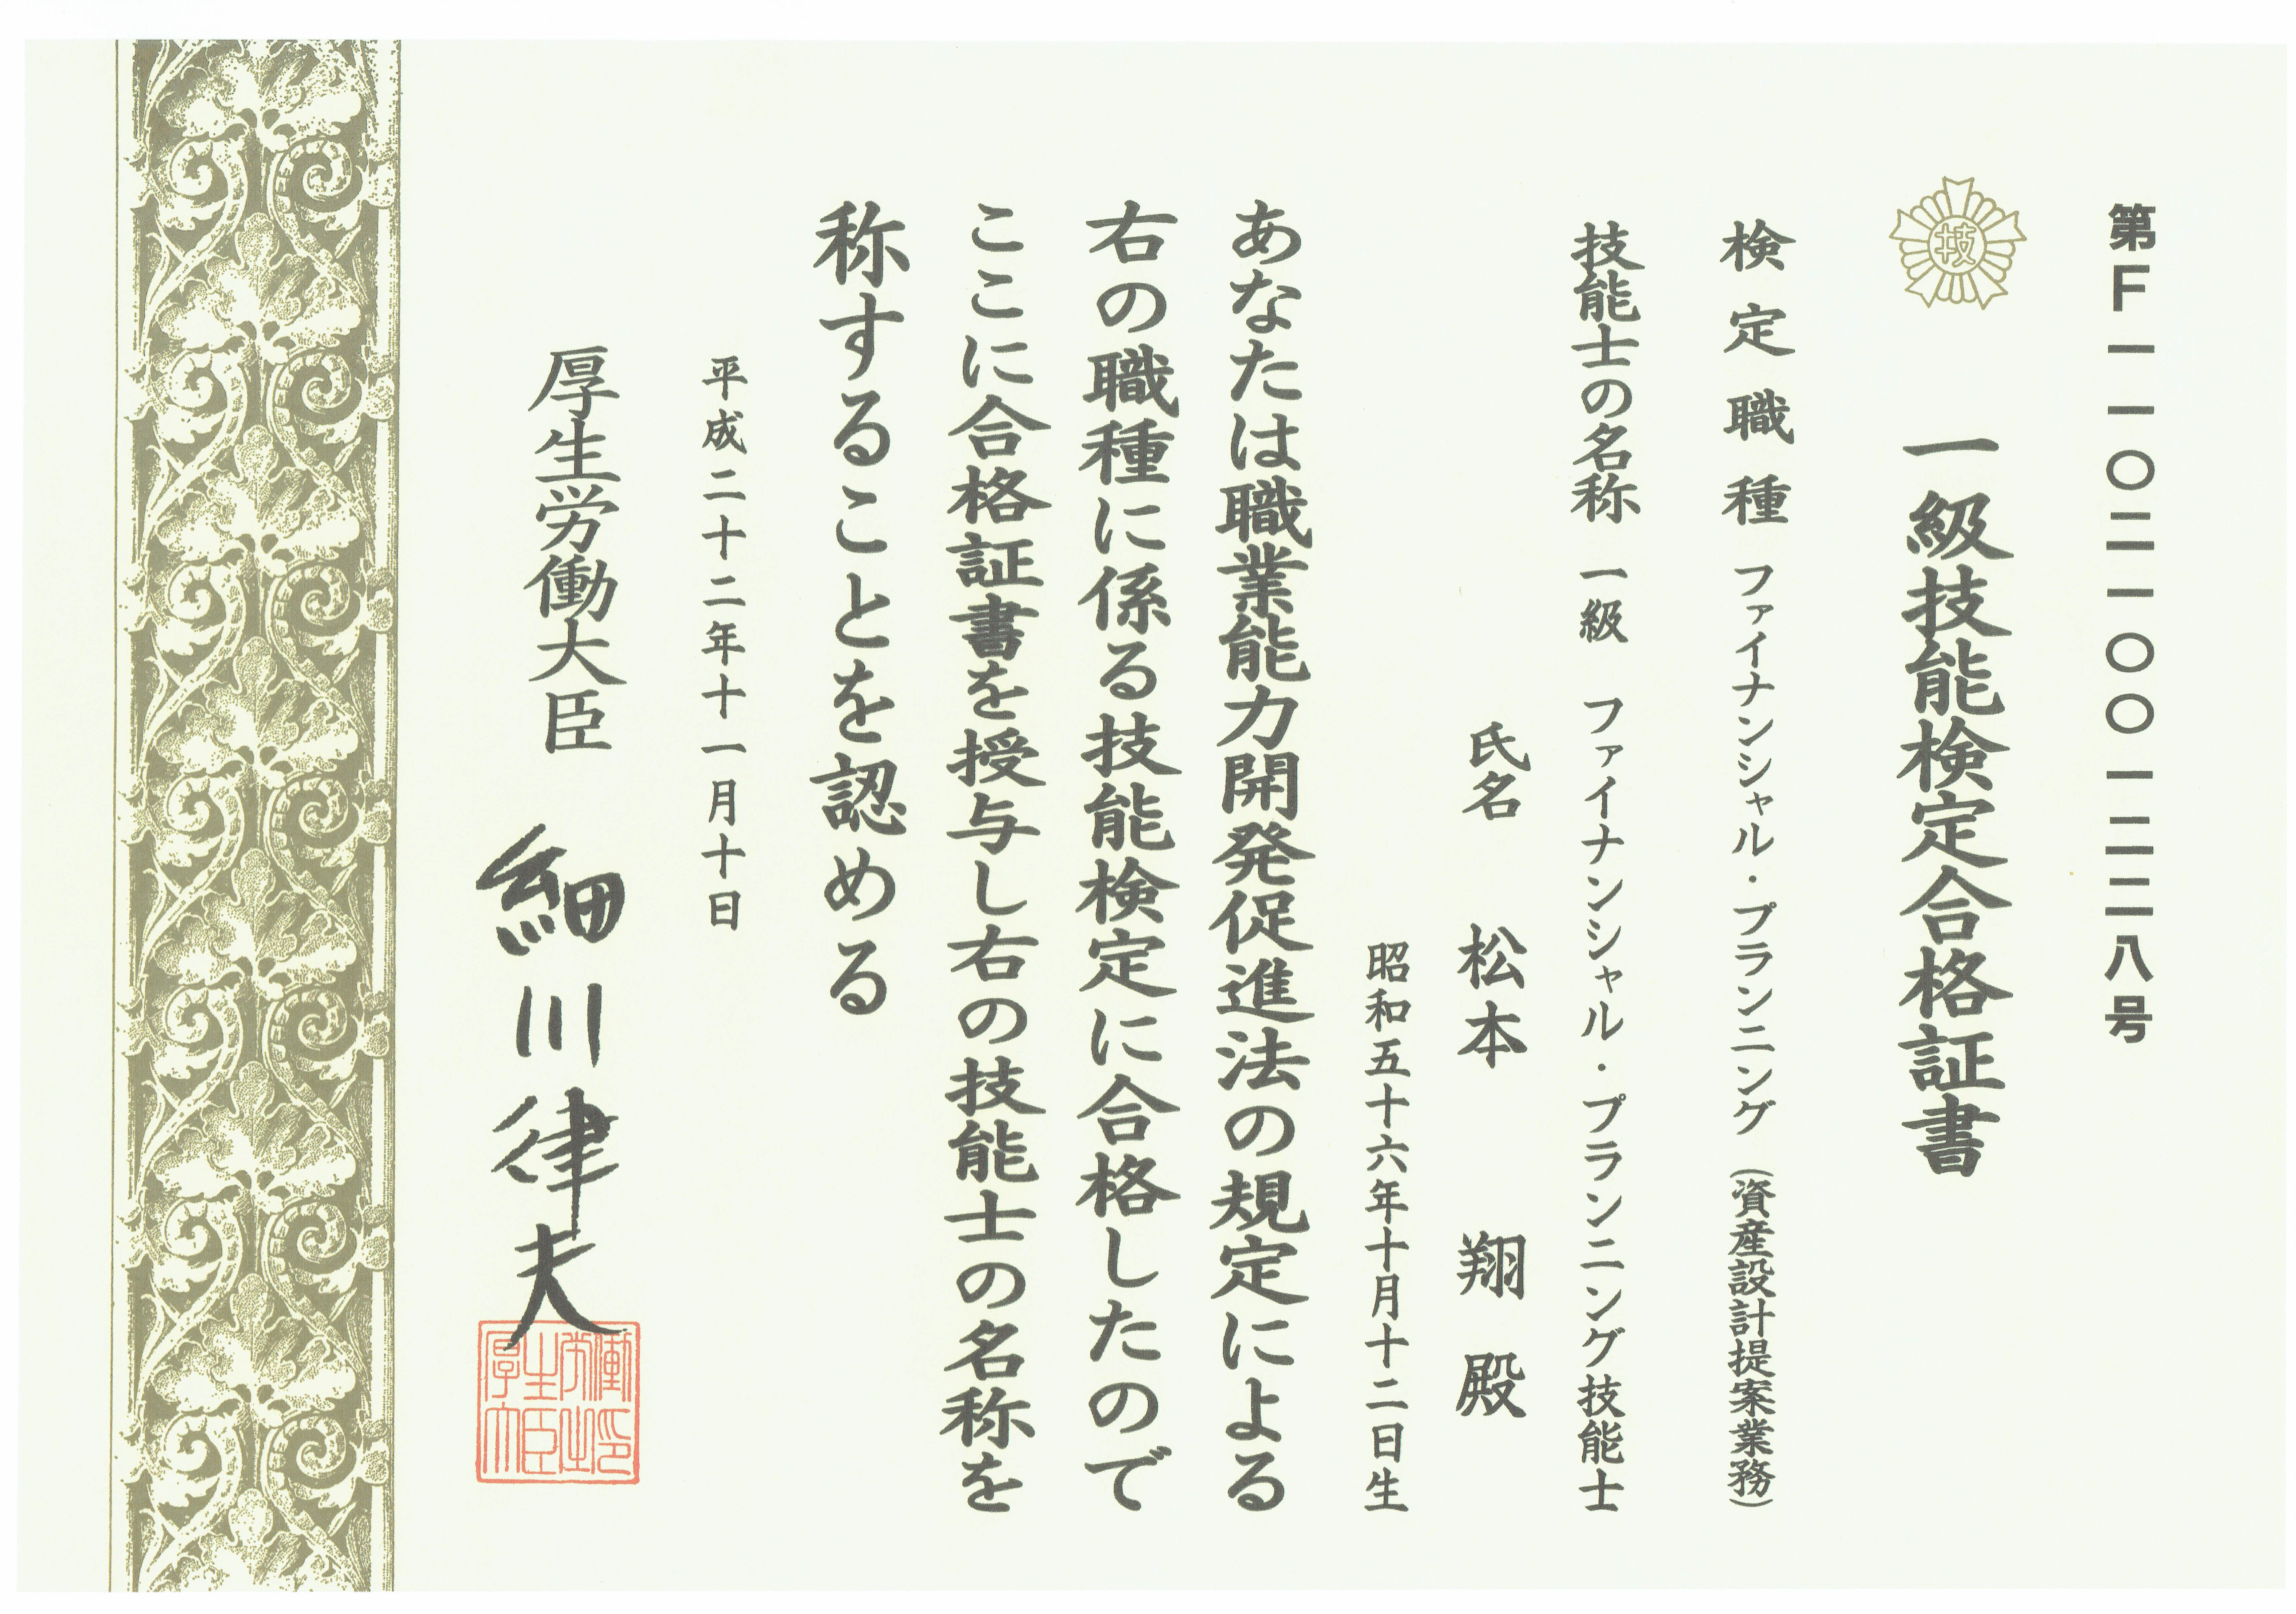 第F一一〇二一〇〇一二二八号
技
一級技能検定合格証書
検定職種 ファイナンシャル・プランニング（資産設計提案業務）
技能士の名称 一級 ファイナンシャル・プランニング技能士
氏名 松本 翔 殿
昭和五十六年十月十二日生
あなたは職業能力開発促進法の規定による
右の職種に係る技能検定に合格したので
ここに合格証書を授与し右の技能士の名称を
称することを認める
平成二十二年十一月十日
厚生労働大臣 細川律夫
厚生労働
大臣之印